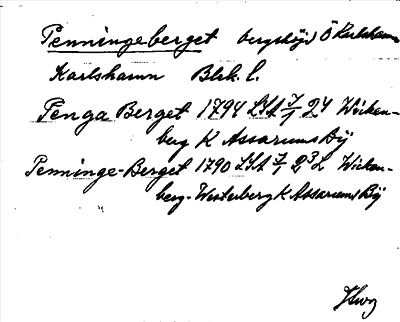 Penningeberget bergshöjd Ö Karlshamn
Karlshamn Blek. l.
Penga Berget 1794 LSA 7/1 24 Wicken-
berg K Assarums By
Penninge-Berget 1790 LSA 7/1 23L Wicken-
berg-Westerberg K Assarums By